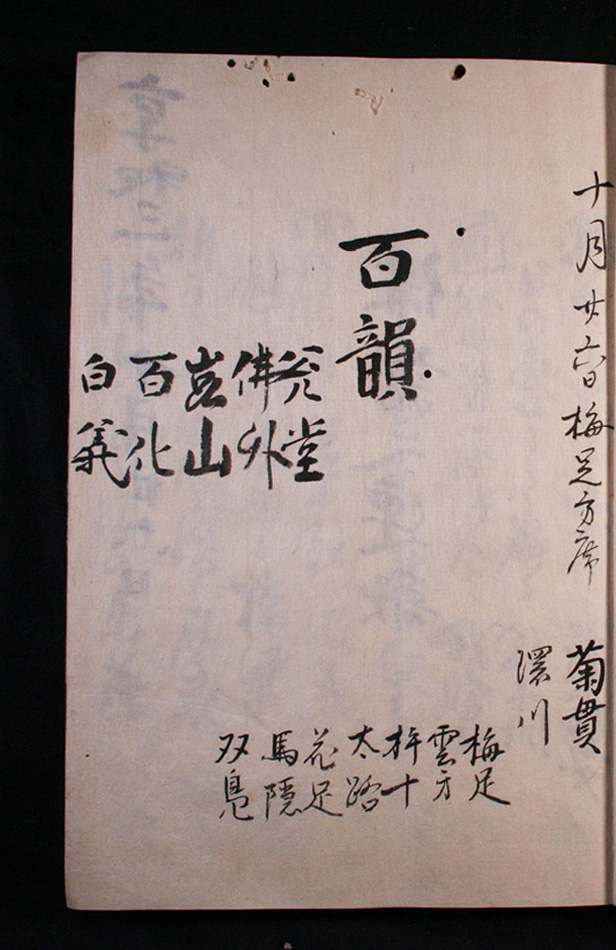 十月廿六日梅足方席
菊貫
環川
梅足
雲方
杵十
太路
花足
馬隠
双鳧
百韻
堂
佛外
山
百化
白義